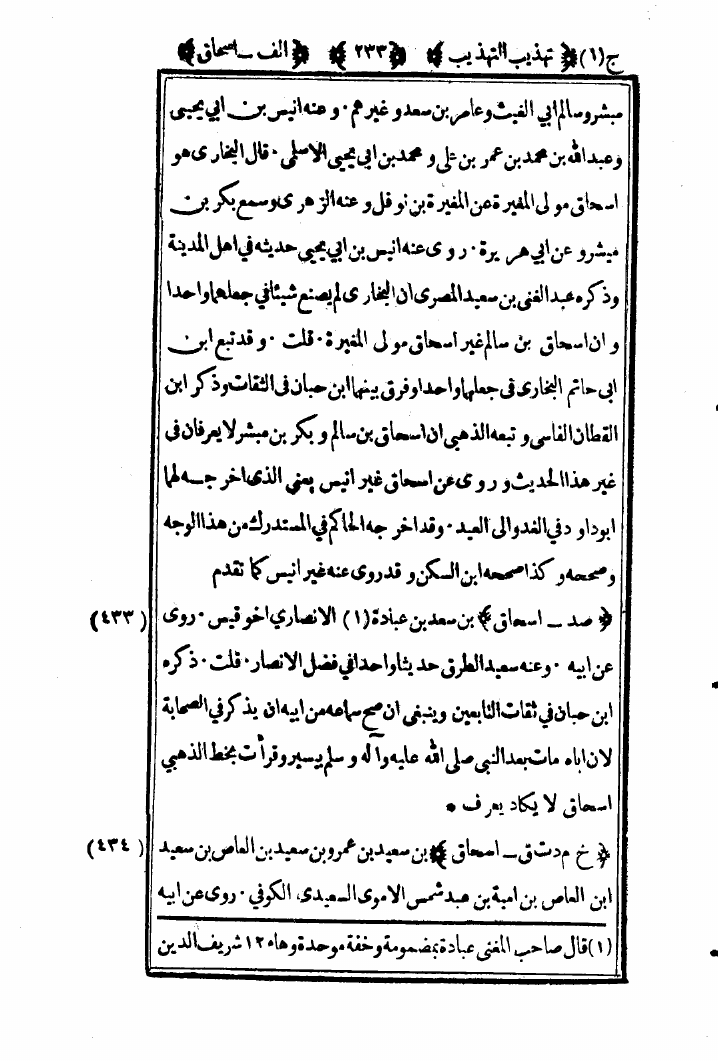 ج(١) ﴿ تهذيب التهذيب ﴾ ﴿٢٣٣﴾ ﴿ الف ـ اسحاق ﴾
مبشر وسالم ابي الغيث وعامر بن سعد وغيرهم ٠ وعنه انيس بن ابي يحيى
وعبدالله بن محمد بن عمر بن علي ومحمد بن ابي يحيى الاسلمي ٠ قال البخاري هو
اسحاق مولى المغيرة عن المغيرة بن نوفل وعنه الزهرى وسمع بكر بن
مبشر وعن ابي هريرة ٠ روى عنه انيس بن ابي يحيى حديثه في اهل المدينة
وذكره عبدالغنى بن سعيد المصرى ان البخارى لم يصنع شيئا في جعلهما واحدا
وان اسحاق بن سالم غير اسحاق مولى المغيرة ٠ قلت ٠ وقد تبع ابن
ابى حاتم البخارى فى جعلهما واحدا وفرق بينهما ابن حبان فى الثقات وذكر ابن
القطان الفاسى وتبعه الذهبي ان اسحاق بن سالم وبكر بن مبشر لا يعرفان فى
غير هذا الحديث وروى عن اسحاق غير انيس يعني الذى اخرجه لهما
ابو داود في الغدو الى العيد ٠ وقد اخرجه الحاكم في المستدرك من هذا الوجه
وصححه وكذا صححه ابن السكن وقد روى عنه غير انيس كما تقدم
﴿ صد ـ اسحاق ﴾ بن سعد بن عبادة (١) الانصاري اخو قيس ٠ روى (٤٣٣)
عن ابيه ٠ وعنه سعيد الطرق حديثا واحدا في فضل الانصار ٠ قلت ٠ ذكره
ابن حبان في ثقات التابعين وينبغى ان صح سماعه من ابيه ان يذكر في الصحابة
لان اباه مات بعد النبي صلى الله عليه وآله وسلم بيسير وقرأت بخط الذهبي
اسحاق لا يكاد يعرف *
﴿ خ م د ت ق ـ اسحاق ﴾ بن سعيد بن عمرو بن سعيد بن العاص بن سعيد (٤٣٤)
ابن العاص بن امية بن عبد شمس الاموى السعيدى الكوفي ٠ روى عن ابيه
(١) قال صاحب المغنى عبادة بمضمومة وخفة موحدة وهاء ١٢ شريف الدين